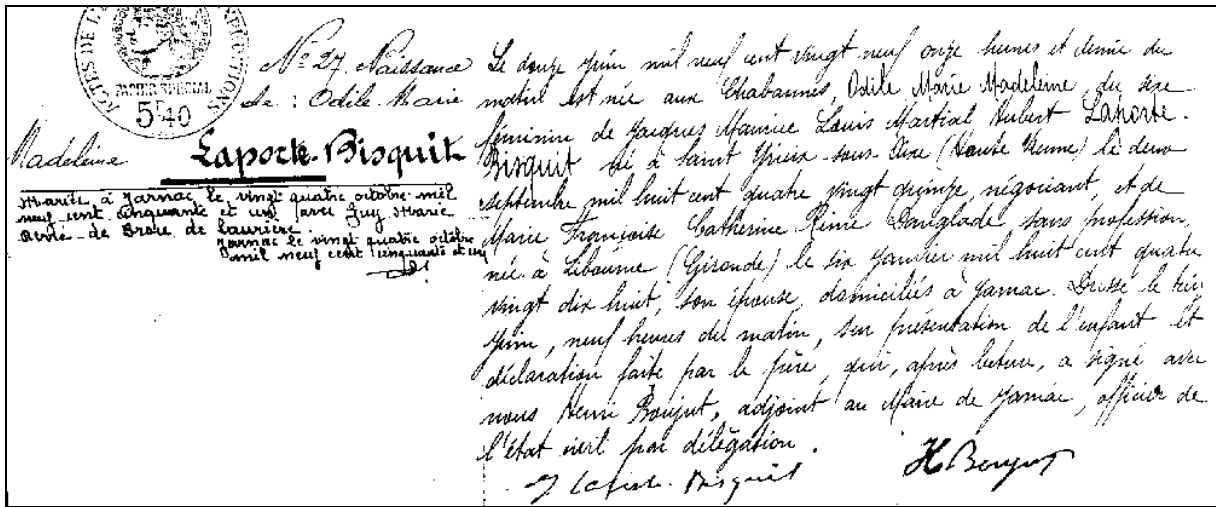 ACTES DE L
EXPÉDITIONS
PAPIER SPÉCIAL
5F40
N° 27 Naissance
de : Odile Marie
Madeleine Laporte-Bisquit
Mariée à Jarnac, le vingt quatre octobre mil
neuf cent cinquante et un avec Guy Marie
René de Brose de Laurière.
Jarnac le vingt quatre octobre
mil neuf cent cinquante et un
Le douze juin mil neuf cent vingt neuf onze heures et demie du
matin est née aux Chabannes, Odile Marie Madeleine, du sexe
féminin de Jacques Maurice Louis Martial Hubert Laporte-
Bisquit né à Saint Yrieix-sous-Aixe (Haute Vienne) le deux
septembre mil huit cent quatre vingt quinze, négociant, et de
Marie Françoise Catherine Reine Danglade sans profession,
née à Libourne (Gironde) le six janvier mil huit cent quatre
vingt dix huit, son épouse, domiciliés à Jarnac. Dressé le
juin, neuf heures du matin, sur présentation de l'enfant et
déclaration faite par le père, qui, après lecture, a signé avec
nous Henri Boujut, adjoint au Maire de Jarnac, officier de
l'état civil par délégation.
J Laporte-Bisquit
H Boujut